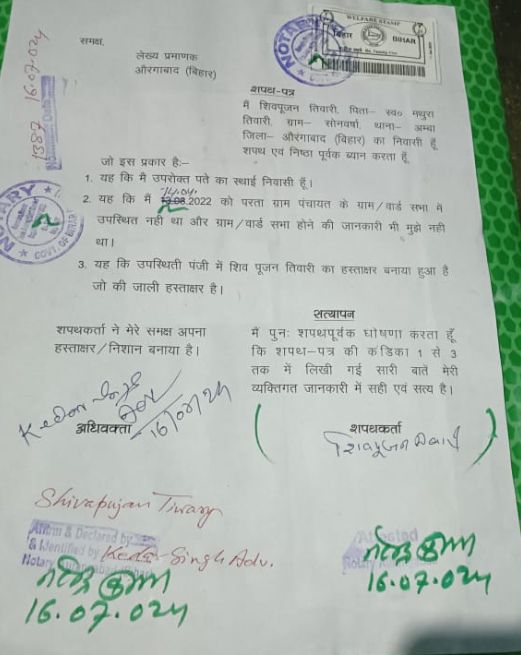 WELFARE STAMP
बिहार BIHAR
NOTARY
समक्ष,
लेख्य प्रमाणक
औरगाबाद (बिहार)
1387 16.07.024
शपथ-पत्र
मैं शिवपूजन तिवारी, पिता- स्व० मथुरा
तिवारी, ग्राम- सोनवर्षा, थाना- अम्बा
जिला- औरंगाबाद (बिहार) का निवासी हूँ
शपथ एवं निष्ठा पूर्वक ब्यान करता हूँ
जो इस प्रकार है:-
1. यह कि मैं उपरोक्त पते का स्थाई निवासी हूँ।
14.04.
2. यह कि मैं 13.08.2022 को परता ग्राम पंचायत के ग्राम/वार्ड सभा में
उपस्थित नही था और ग्राम/वार्ड सभा होने की जानकारी भी मुझे नही
था।
NOTARY
GOVT. OF BIHAR
3. यह कि उपस्थिती पंजी में शिव पूजन तिवारी का हस्ताक्षर बनाया हुआ है
जो की जाली हस्ताक्षर है।
शपथकर्ता ने मेरे समक्ष अपना
हस्ताक्षर/निशान बनाया है।
सत्यापन
मैं पुनः शपथपूर्वक घोषणा करता हूँ
कि शपथ-पत्र की कंडिका 1 से 3
तक में लिखी गई सारी बातें मेरी
व्यक्तिगत जानकारी में सही एवं सत्य है।
Kedar Singh
Adv
16/07/24
अधिवक्ता
शपथकर्ता
Shivapujan Tiwary
Affirm & Declared by
& Identified by Kedar Singh Adv.
Notary
16.07.024
Attested
Notary
16.07.024